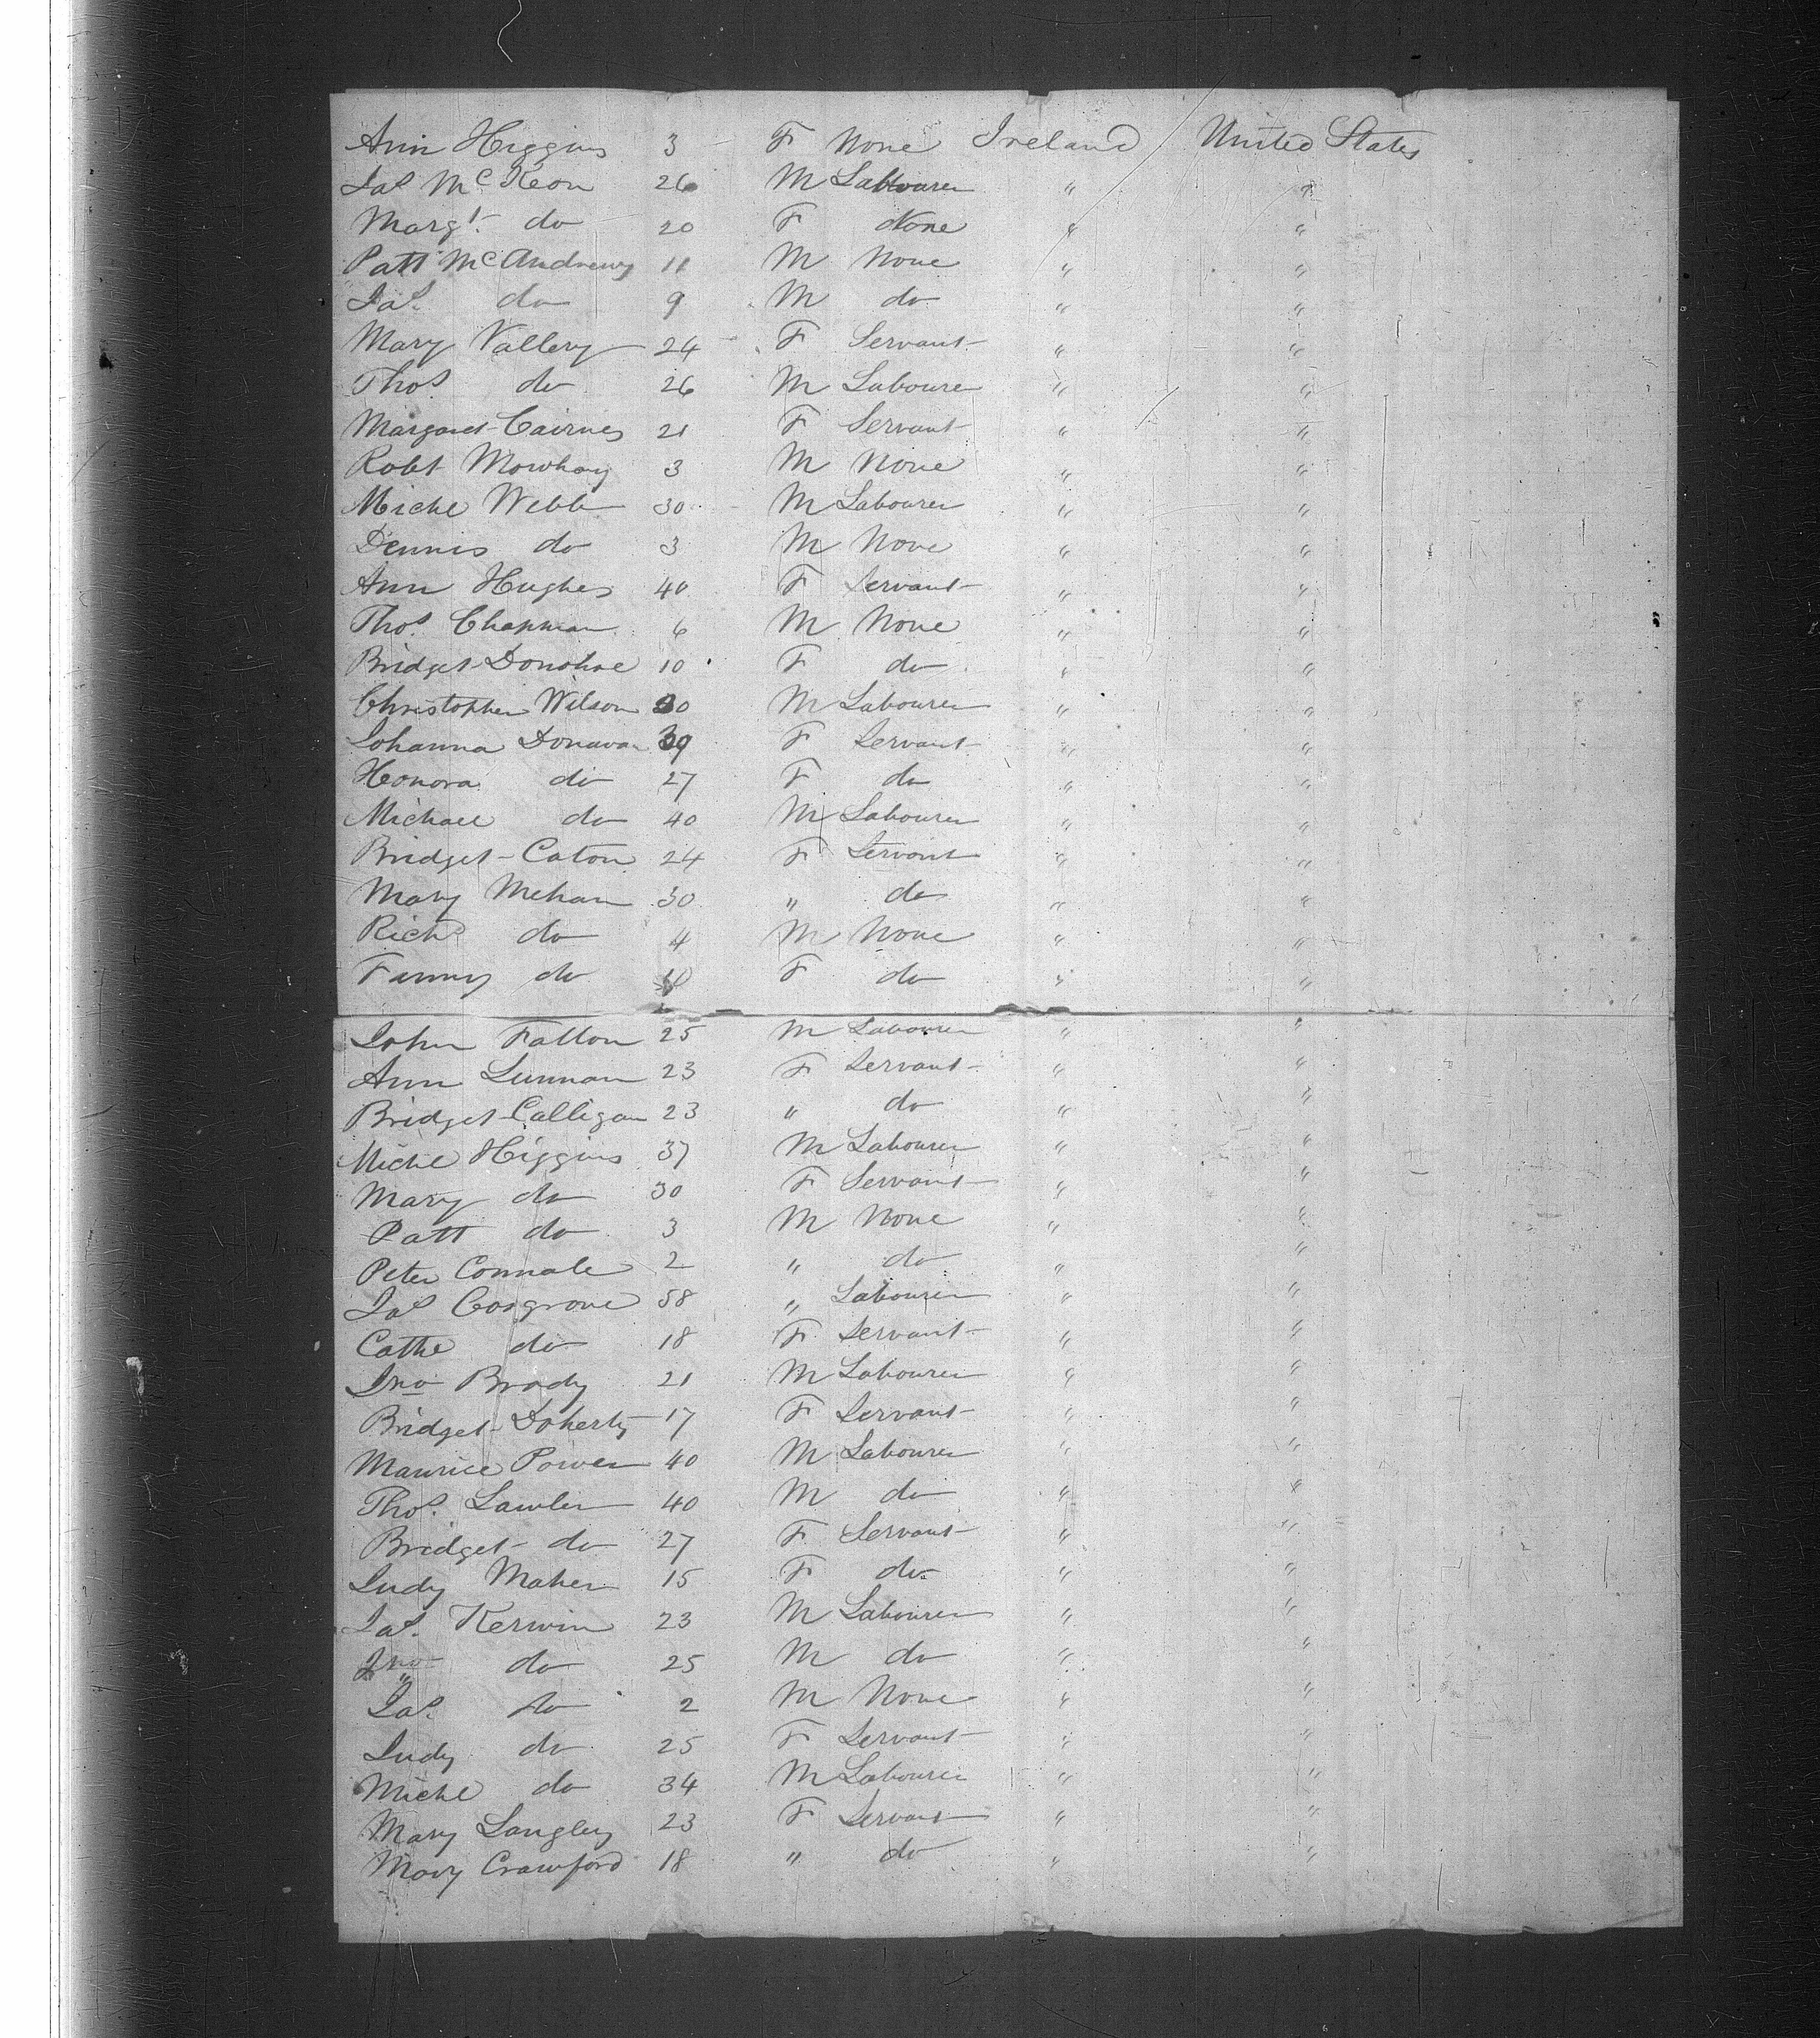 Ann Higgins 3 F None Ireland United States
Jas McKeon 26 M Labourer " "
Margt. do 20 F None " "
Patt McAndrews 11 M None " "
Jas. do 9 M do " "
Mary Vallery 24 F Servant " "
Thos. do 26 M Labourer " "
Margaret Cairnes 21 F Servant " "
Robt Mowhay 3 M None " "
Michl Webb 30 M Labourer " "
Dennis do 3 M None " "
Ann Hughes 40 F Servant " "
Thos. Chapman 6 M None " "
Bridget Donohoe 10 F do " "
Christopher Wilson 30 M Labourer " "
Johanna Donavan 39 F Servant " "
Honora do 27 F do " "
Michael do 40 M Labourer " "
Bridget Caton 24 F Servant " "
Mary Mehan 30 " do " "
Richd do 4 M None " "
Fanny do F do " "
John Fallon 25 M Labourer " "
Ann Lunnan 23 F Servant " "
Bridget Calligan 23 " do " "
Michl Higgins 37 M Labourer " "
Mary do 30 F Servant " "
Patt do 3 M None " "
Peter Connale 2 " do " "
Jas Cosgrove 58 " Labourer " "
Cathe do 18 F Servant " "
Jno Brady 21 M Labourer " "
Bridget Doherty 17 F Servant " "
Maurice Power 40 M Labourer " "
Thos. Lawler 40 M do " "
Bridget do 27 F Servant " "
Judy Maher 15 F do " "
Jas. Kerwin 23 M Labourer " "
Jno do 25 M do " "
Jas. do 2 M None " "
Judy do 25 F Servant " "
Michl do 34 M Labourer " "
Mary Langley 23 F Servant " "
Mary Crawford 18 " do " "